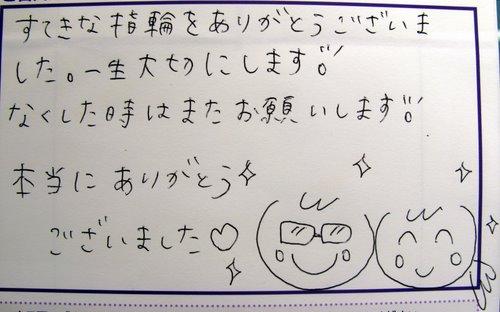 すてきな指輪をありがとうございま
した。一生大切にします!!
なくした時はまたお願いします!!
本当にありがとう
ございました♡